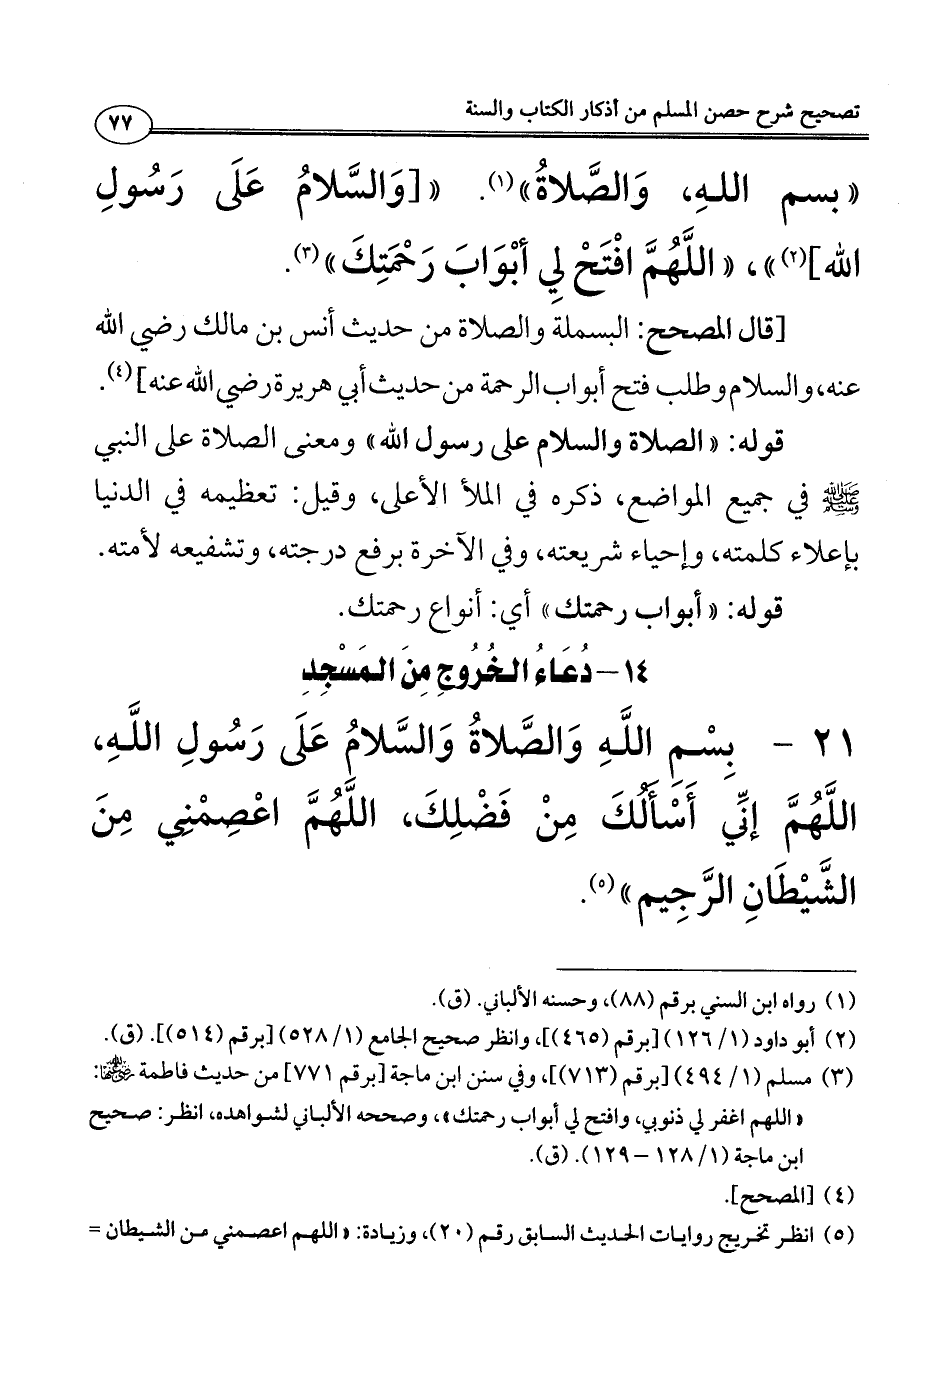 تصحيح شرح حصن المسلم من أذكار الكتاب والسنة
٧٧
«بسم اللهِ، وَالصَّلاةُ»(١). «[وَالسَّلامُ عَلَى رَسُولِ
الله](٢)»، «اللَّهُمَّ افْتَحْ لِي أَبْوَابَ رَحْمَتِكَ»(٣).
[قال المصحح: البسملة والصلاة من حديث أنس بن مالك رضي الله
عنه، والسلام وطلب فتح أبواب الرحمة من حديث أبي هريرة رضي الله عنه](٤).
قوله: «الصلاة والسلام على رسول الله» ومعنى الصلاة على النبي
ﷺ في جميع المواضع، ذكره في الملأ الأعلى، وقيل: تعظيمه في الدنيا
بإعلاء كلمته، وإحياء شريعته، وفي الآخرة برفع درجته، وتشفيعه لأمته.
قوله: «أبواب رحمتك» أي: أنواع رحمتك.
١٤ - دُعَاءُ الخُرُوجِ مِنَ المَسْجِدِ
٢١ - بِسْمِ اللَّهِ وَالصَّلاةُ وَالسَّلامُ عَلَى رَسُولِ اللَّهِ،
اللَّهُمَّ إِنِّي أَسْأَلُكَ مِنْ فَضْلِكَ، اللَّهُمَّ اعْصِمْنِي مِنَ
الشَّيْطَانِ الرَّجِيم»(٥).
(١) رواه ابن السني برقم (٨٨)، وحسنه الألباني. (ق).
(٢) أبو داود (١/ ١٢٦) [برقم (٤٦٥)]، وانظر صحيح الجامع (١/ ٥٢٨) [برقم (٥١٤)]. (ق).
(٣) مسلم (١/ ٤٩٤) [برقم (٧١٣)]، وفي سنن ابن ماجة [برقم ٧٧١] من حديث فاطمة رضي الله عنها:
«اللهم اغفر لي ذنوبي، وافتح لي أبواب رحمتك»، وصححه الألباني لشواهده، انظر: صحيح
ابن ماجة (١/ ١٢٨ – ١٢٩). (ق).
(٤) [المصحح].
(٥) انظر تخريج روايات الحديث السابق رقم (٢٠)، وزيادة: «اللهم اعصمني من الشيطان =